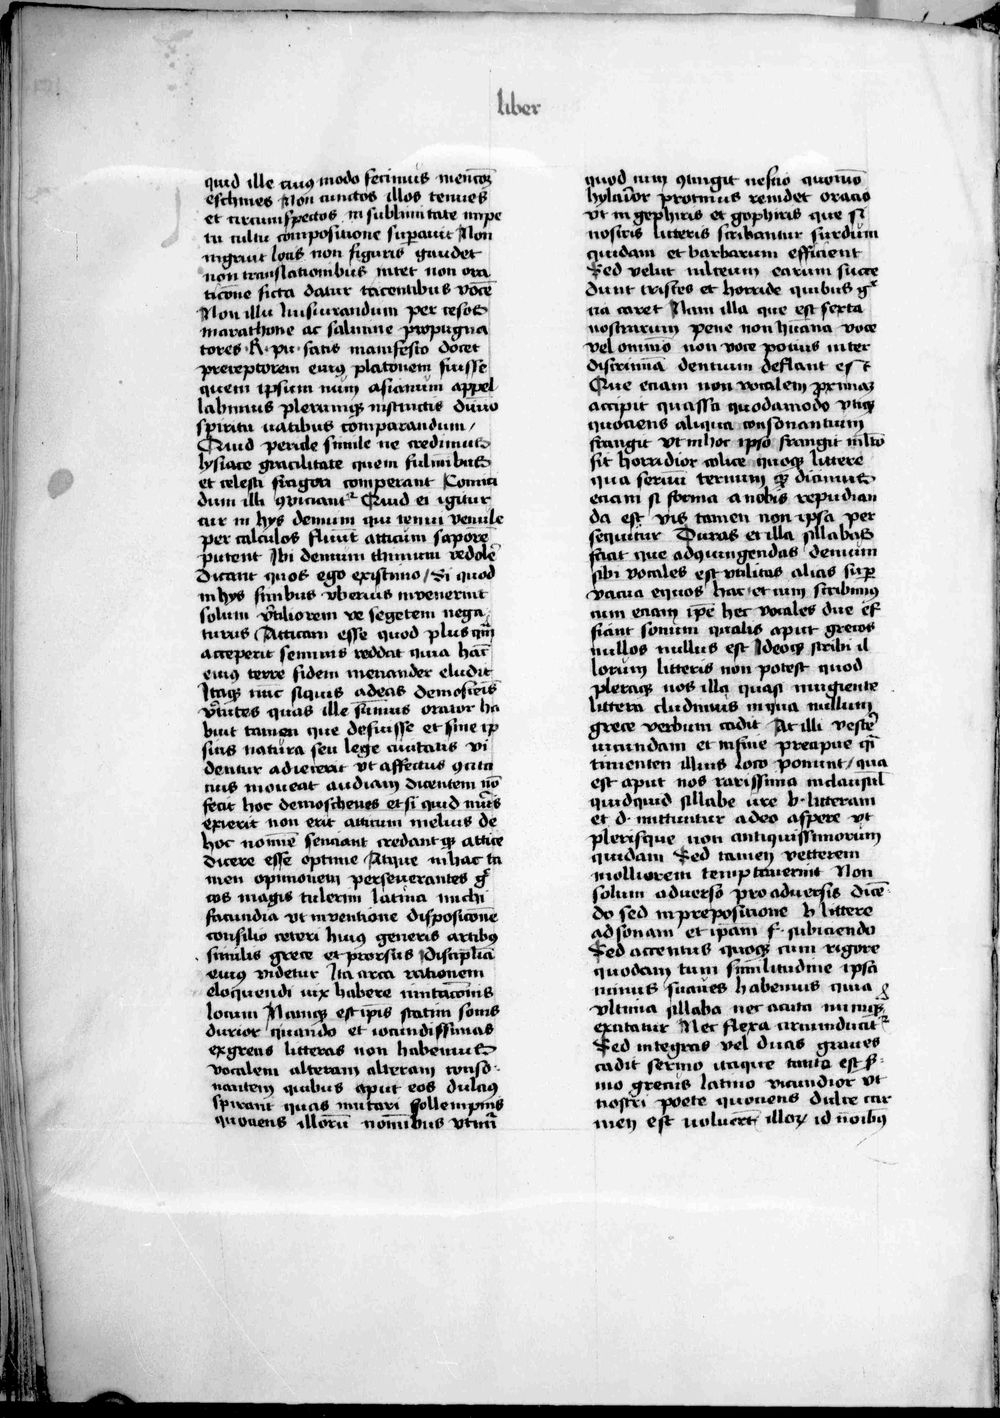 liber
quid ille cuius modo fecimus mencōꝫ
eschines Non cunctos illos tenues
et circumspectos in sublimitate impe
tu cultu compositione suꝑauit Non
nigrut locis non figuris gaudet
non translationibus nitet non ora
ticōne ficta datur tacentibus vocē
Non illu Iusiurandum per cesos
marathone ac salmine propugna
tores R. pu. satis manifesto docet
preceptorem eius platonem fuisse
quem ipsum nūm asianum appel
labimus plerumqꝫ instinctis diuīo
spiritu uatibus comparandum /
Quid pericle simile ne credimus
lysiace gracilitate quem fulmībus
et celesti fragori comperant Comici
dum illi ꝯviciantᷣ Quid ei igitur
cur in hys demum qui tenui venule
per calculos fluūt atticum saporē
putent Ibi demum thimum redolē
Dicant quos ego existimo / Si quod
in hys finibus vberius invenerint
solum v̄tiliorem ve segetem nega
turus Atticam esse quod plus qm̄
acceperit seminis reddat quia hāc
eius terre fidem menander eludit
Itaqꝫ nūc siquis adeas demostenis
v̄tutes quas ille sūmus orator ha
buit tamen que defuisse et siue ip
sius natura seu lege ciuitatis vi
dentur adiecerit vt affectus ꝯcita
cius moueat audiam dicentem nō
fecit hoc demosthenes et si quid nūris
exierit non erit atticum melius de
hoc nomīe senciant credantqꝫ attice
dicere esse optime Atque in hac ta
men opinionem perseuerantes ḡ
cos magis tulerim latina michi
facundia vt inventione disposicōne
consilio ceteri huius generis artibus
similis grece et prorsus discipl̄ia
eius videtur Ita circa rationem
eloquendi uix habere imitacōnis
locum Namqꝫ est ip̄is statim sonis
durior quando et iocundissimas
ex grecis litteras non habemus
vocalem alteram alteram conso-
nantem quibus aput eos dulcius
spirant quas mutari sollempnis
quociens illorū nomībus vtim̄
quod cum ꝯtingit nescio quomō
hylarior protinus renidet oracio
vt in zephiris et zophiris que si
nostris litteris scribantur surdum
quidam et barbarum efficient
Sed velut in locum earum succe
dunt tristes et horride quibus ḡ
cia caret Nam illa que est sexta
nostrarum pene non hūana voce
vel omnīo non voce pocius inter
discrimīa dentium efflanda est
Que etiam non vocalem primaꝫ
accipit quassa quodamodo vtiqꝫ
quociens aliqua consonantium
frangit vt in hoc ipso frangit m̄lto
fit horridior eolice quoqꝫ littere
qua seruū ceruum qꝫ dicimus
etiam si forma a nobis repudian
da est vis tamen non ipsa per
sequitur Duras et illa sillabas
faciat que ad coniungendas demum
sibi vocales est vtilitas alias suꝑ
vacua equos hac et cum scribimus
cum etiam ip̄e hec vocales due ef
ficiant sonum qualis aput grecos
nullos nullus est Ideoqꝫ scribi il
lorum litteris non potest quod
pleraqꝫ nos illa quasi mugiente
littera cludimus in qua nullum
grece verbum cadit At illi vestē
iucundam et in fine precipue q̄i
tinnienten illius loco ponunt / qua
est aput nos rarissima in clausul
quidquid sillabe ure b. litteram
et d. inittuitur adeo aspere vt
plerisque non antiquissimorum
quidam Sed tamen vetterem
molliorem temptauerint Non
solum aduerso pro aduersis dicē-
do sed in preposicione b littere
ad sonam et ip̄am f. subiciendo
Sed accentus quoqꝫ cum rigore
quodam tum similitudine ipsa
minus suaues habemus quia
vltima sillaba nec acuta nūmqꝫ
excitatur Nec flexa circumducitᷣ
Sed in tegras vel duas graues
cadit sermo itaque tanto est s̄-
mo grecus latino iucundior vt
nostri poete quociens dulce car
men est uoluert illorꝫ id nōibus